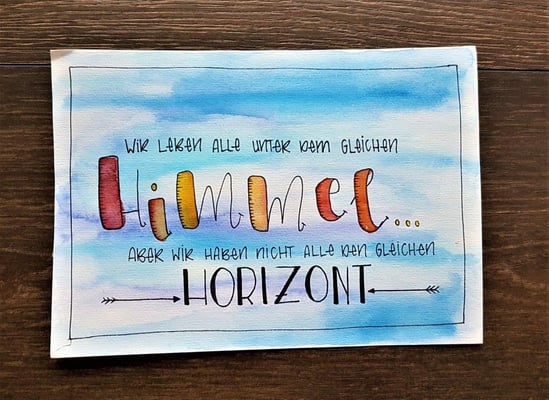 WIR LEBEN ALLE UNTER DEM GLEICHEN
Himmel...
ABER WIR HABEN NICHT ALLE DEN GLEICHEN
HORIZONT